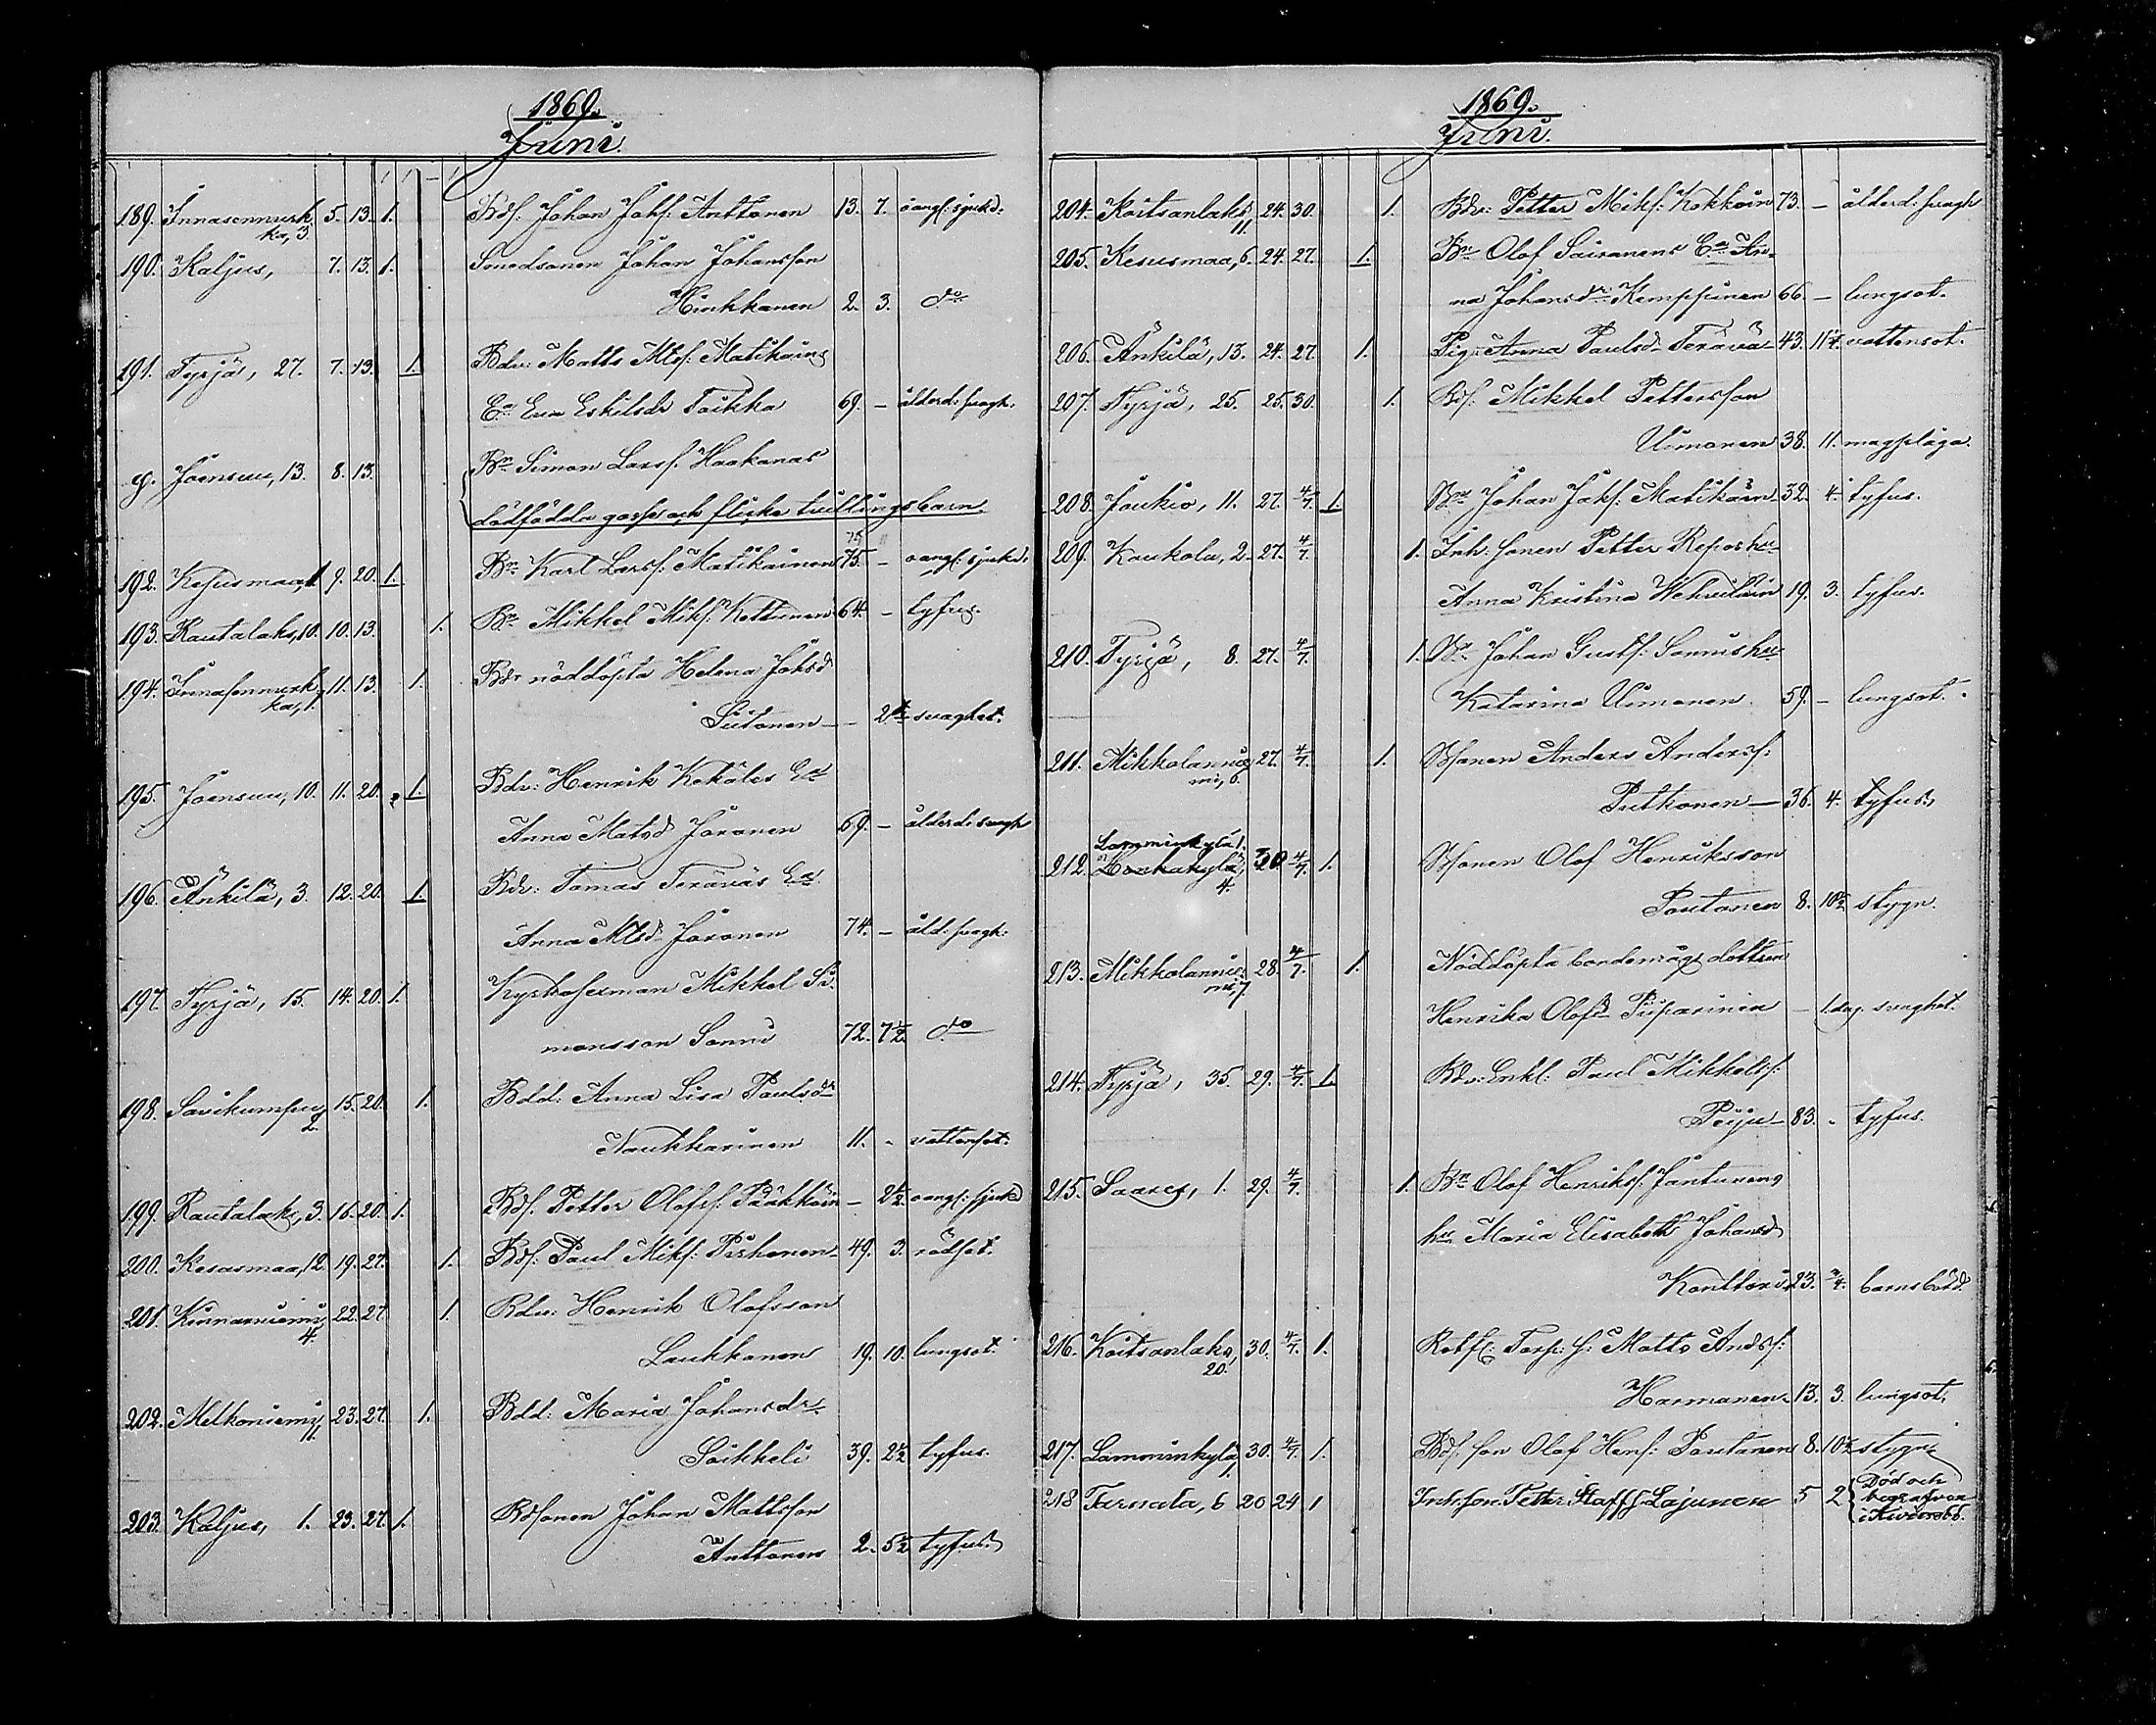 1869.
Juni.
189. Innasenmurk, 5. 13. 1. Bds. Johan Johs: Anttonen 13. 7. oangf: sjukd:
ka, 3.
190. Kaljus, 7. 13. 1. Smedsonen Johan Johansson
Hinkkanen 2. 3. do
191. Tyrjä, 27. 7. 13. 1. Bdv: Matts Mts: Matikains
Ea Eva Eskilsdr Toikka 69. – ålderd: svagh:
g. Joensuu, 13. 8. 13. Bn Simon Larss. Haakanas
dödfödda gosse och flicka tvillingsbarn.
192. Kesusmaa, 1 9. 20. 1. Bn Karl Larss: Matikainen 75. – oangf: sjukd:
193. Rautalaks, 10. 10. 13. 1. Bn Mikkel Miks: Kettunen 64. – tyfus.
194. Innasenmurk, 11. 13. 1. Bdr nöddöpta Helena Johsdr
ka, 1.
Siitonen – – svaghet.
195. Joensuu, 10. 11. 20. 1. Bdv: Henrik Kekäles Ea
Anna Matsd Joronen 69. – ålderd: svagh
196. Änkilä, 3. 12. 20. 1. Bdv: Tomas Teräväs Ea
Anna Mtsd Joronen 74. – åld: svagh:
197. Tyrjä, 15. 14. 20. 1. Kyrkosexman Mikkel Si-
monsson Sonni 72. 7 1/2. do
198. Savikumpu, 15. 20. 1. Bdd: Anna Lisa Paulsdr
2.
Naukkarinen 11. - vattensot:
199. Rautalaks, 3. 16. 20. 1. Bds. Petter Olofss: Pääkköin – 2 1/2. oangf: sjukd
200. Kesusmaa, 12. 19. 27. 1. Bds. Paul Miks: Pirhonen – 49. 3. rödsot.
201. Kinnarniemi, 22. 27. 1. Bdv: Henrik Olofsson
4.
Laukkanen 19. 10. lungsot.
202. Melkoniemi, 23. 27. 1. Bdd: Maria Johansdr
11.
Soikkeli 39. 2 1/2 tyfus.
203. Kaljus, 1. 23. 27. 1. Bdsonen Johan Mattsson
Anttonen 2. 5 1/2 tyfus.
1869.
Juni.
204. Koitsanlaks, 24. 30. 1. Bdv: Petter Miks: Kokkoin 73. – ålderd: svagh
11.
205. Kesusmaa, 6. 24. 27. 1. Bn Olof Sairanens Ea An-
na Johansdr Kemppinen 66. – lungsot.
206. Änkilä, 13. 24. 27. 1. Pig: Anna Paulsd Terävä – 43. vattensot.
207. Tyrjä, 25. 25. 30. 1. Bds: Mikkel Pettersson
Uimonen 38. 11. magplåga.
208. Joukio, 11. 27. 4/7. 1. Bn Johan Johs: Matikain – 32. 4. tyfus.
209. Koukola, 2. 27. 4/7. 1. Inh. sonen Petter Repos hu
Anna Kristina Wehviläin 19. 3. tyfus.
210. Tyrjä, 8. 27. 4/7. 1. Bn Johan Gusts: Sonnis hu
Katarina Uimonen 59. – lungsot.
211. Mikkolannie- 27. 4/7. 1. Bdsonen Anders Anderss:
mi, 6.
Putkonen – 36. 4. tyfus.
Lamminkylä 1.
212. Honkakylä, 30 4/7. 1. Bdsonen Olof Henriksson
4.
Poutanen 8. 10 1/2 stygn.
213. Mikkolannie- 28. 4/7. 1. Nöddöpta bondemågs dottren
mi, 7.
Henrika Olofsd Piiparinen – 1. dag. svaghet.
214. Tyrjä, 35. 29. 4/7. 1. Bdv: Enkl: Paul Mikkelss:
83. - tyfus.
215. Saares, 1. 29. 4/7. 1. Bn Olof Henrikss: Jantunens
hu Maria Elisabeth Johansd
Konttori 23. barnsbörd
216. Koitsanlaks, 30. 4/7. 1. Torp. s: Matts Andss:
20.
Harmanen 13. 3. lungsot.
217. Lamminkylä, 30. 4/7. 1. Bds son Olof Hens: Poutanen 8. 10 1/2 stygn
1.
218 Tarnala, 6 20 24 1 Inh. son Petter Staffs Lajunen 5 2 Död och
begrafven